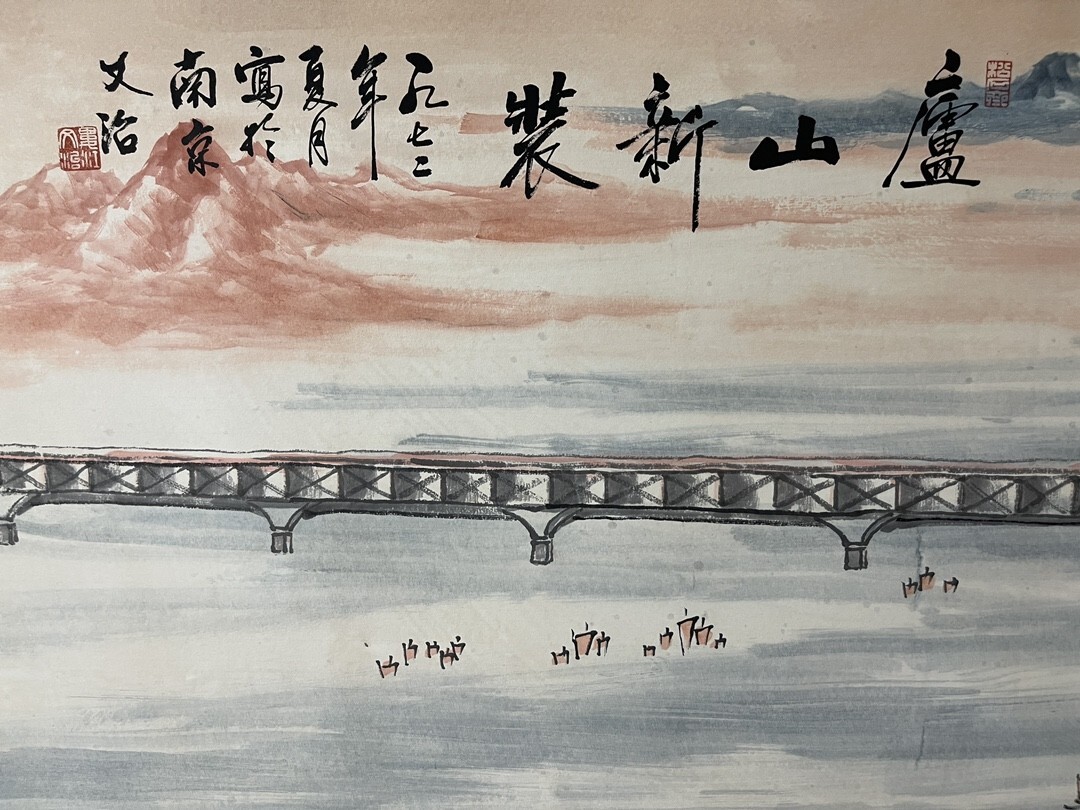 廬山新裝
一九七二
年
夏月
寫於
南京
文治